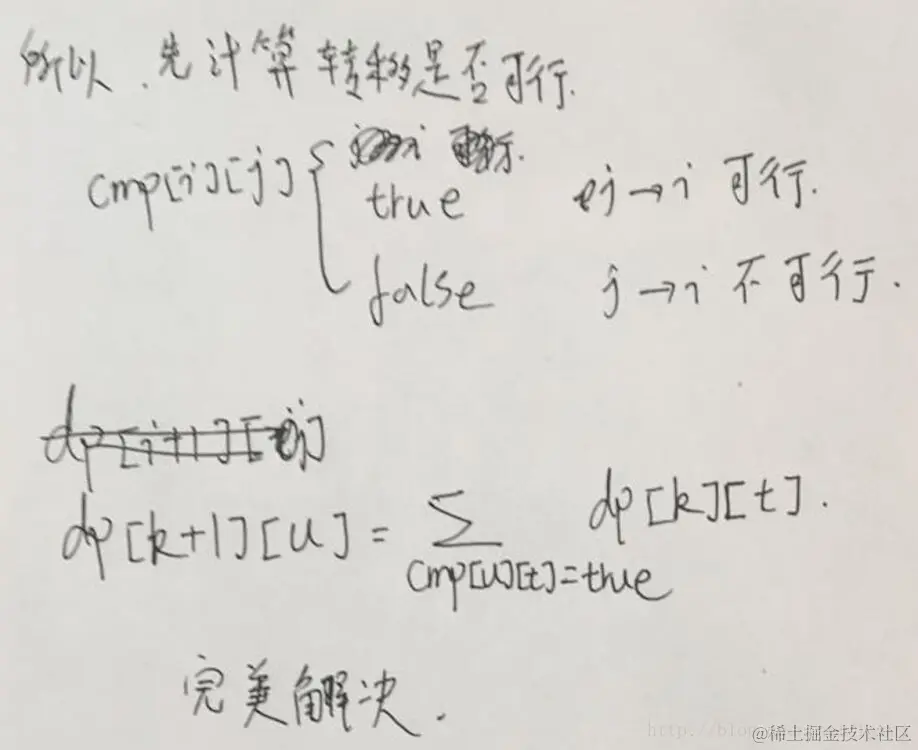 所以.先计算转移是否可行.
cmp[i][j] {
true j→i 可行.
false j→i 不可行.
dp[i+1][j]
dp[k+1][u] = ∑ dp[k][t].
cmp[u][t]=true
完美解决.
http://blog
@稀土掘金技术社区